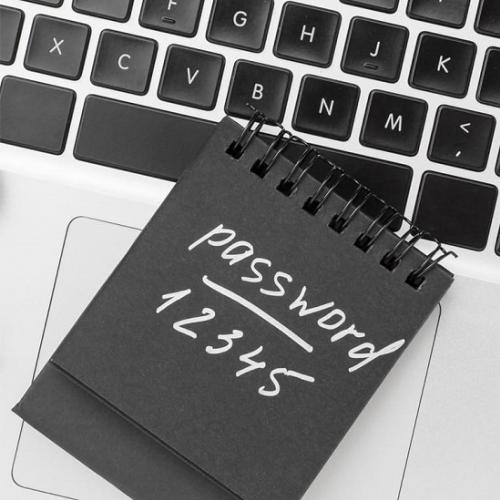 F G H J K
X C V B N M < ,
password
12345